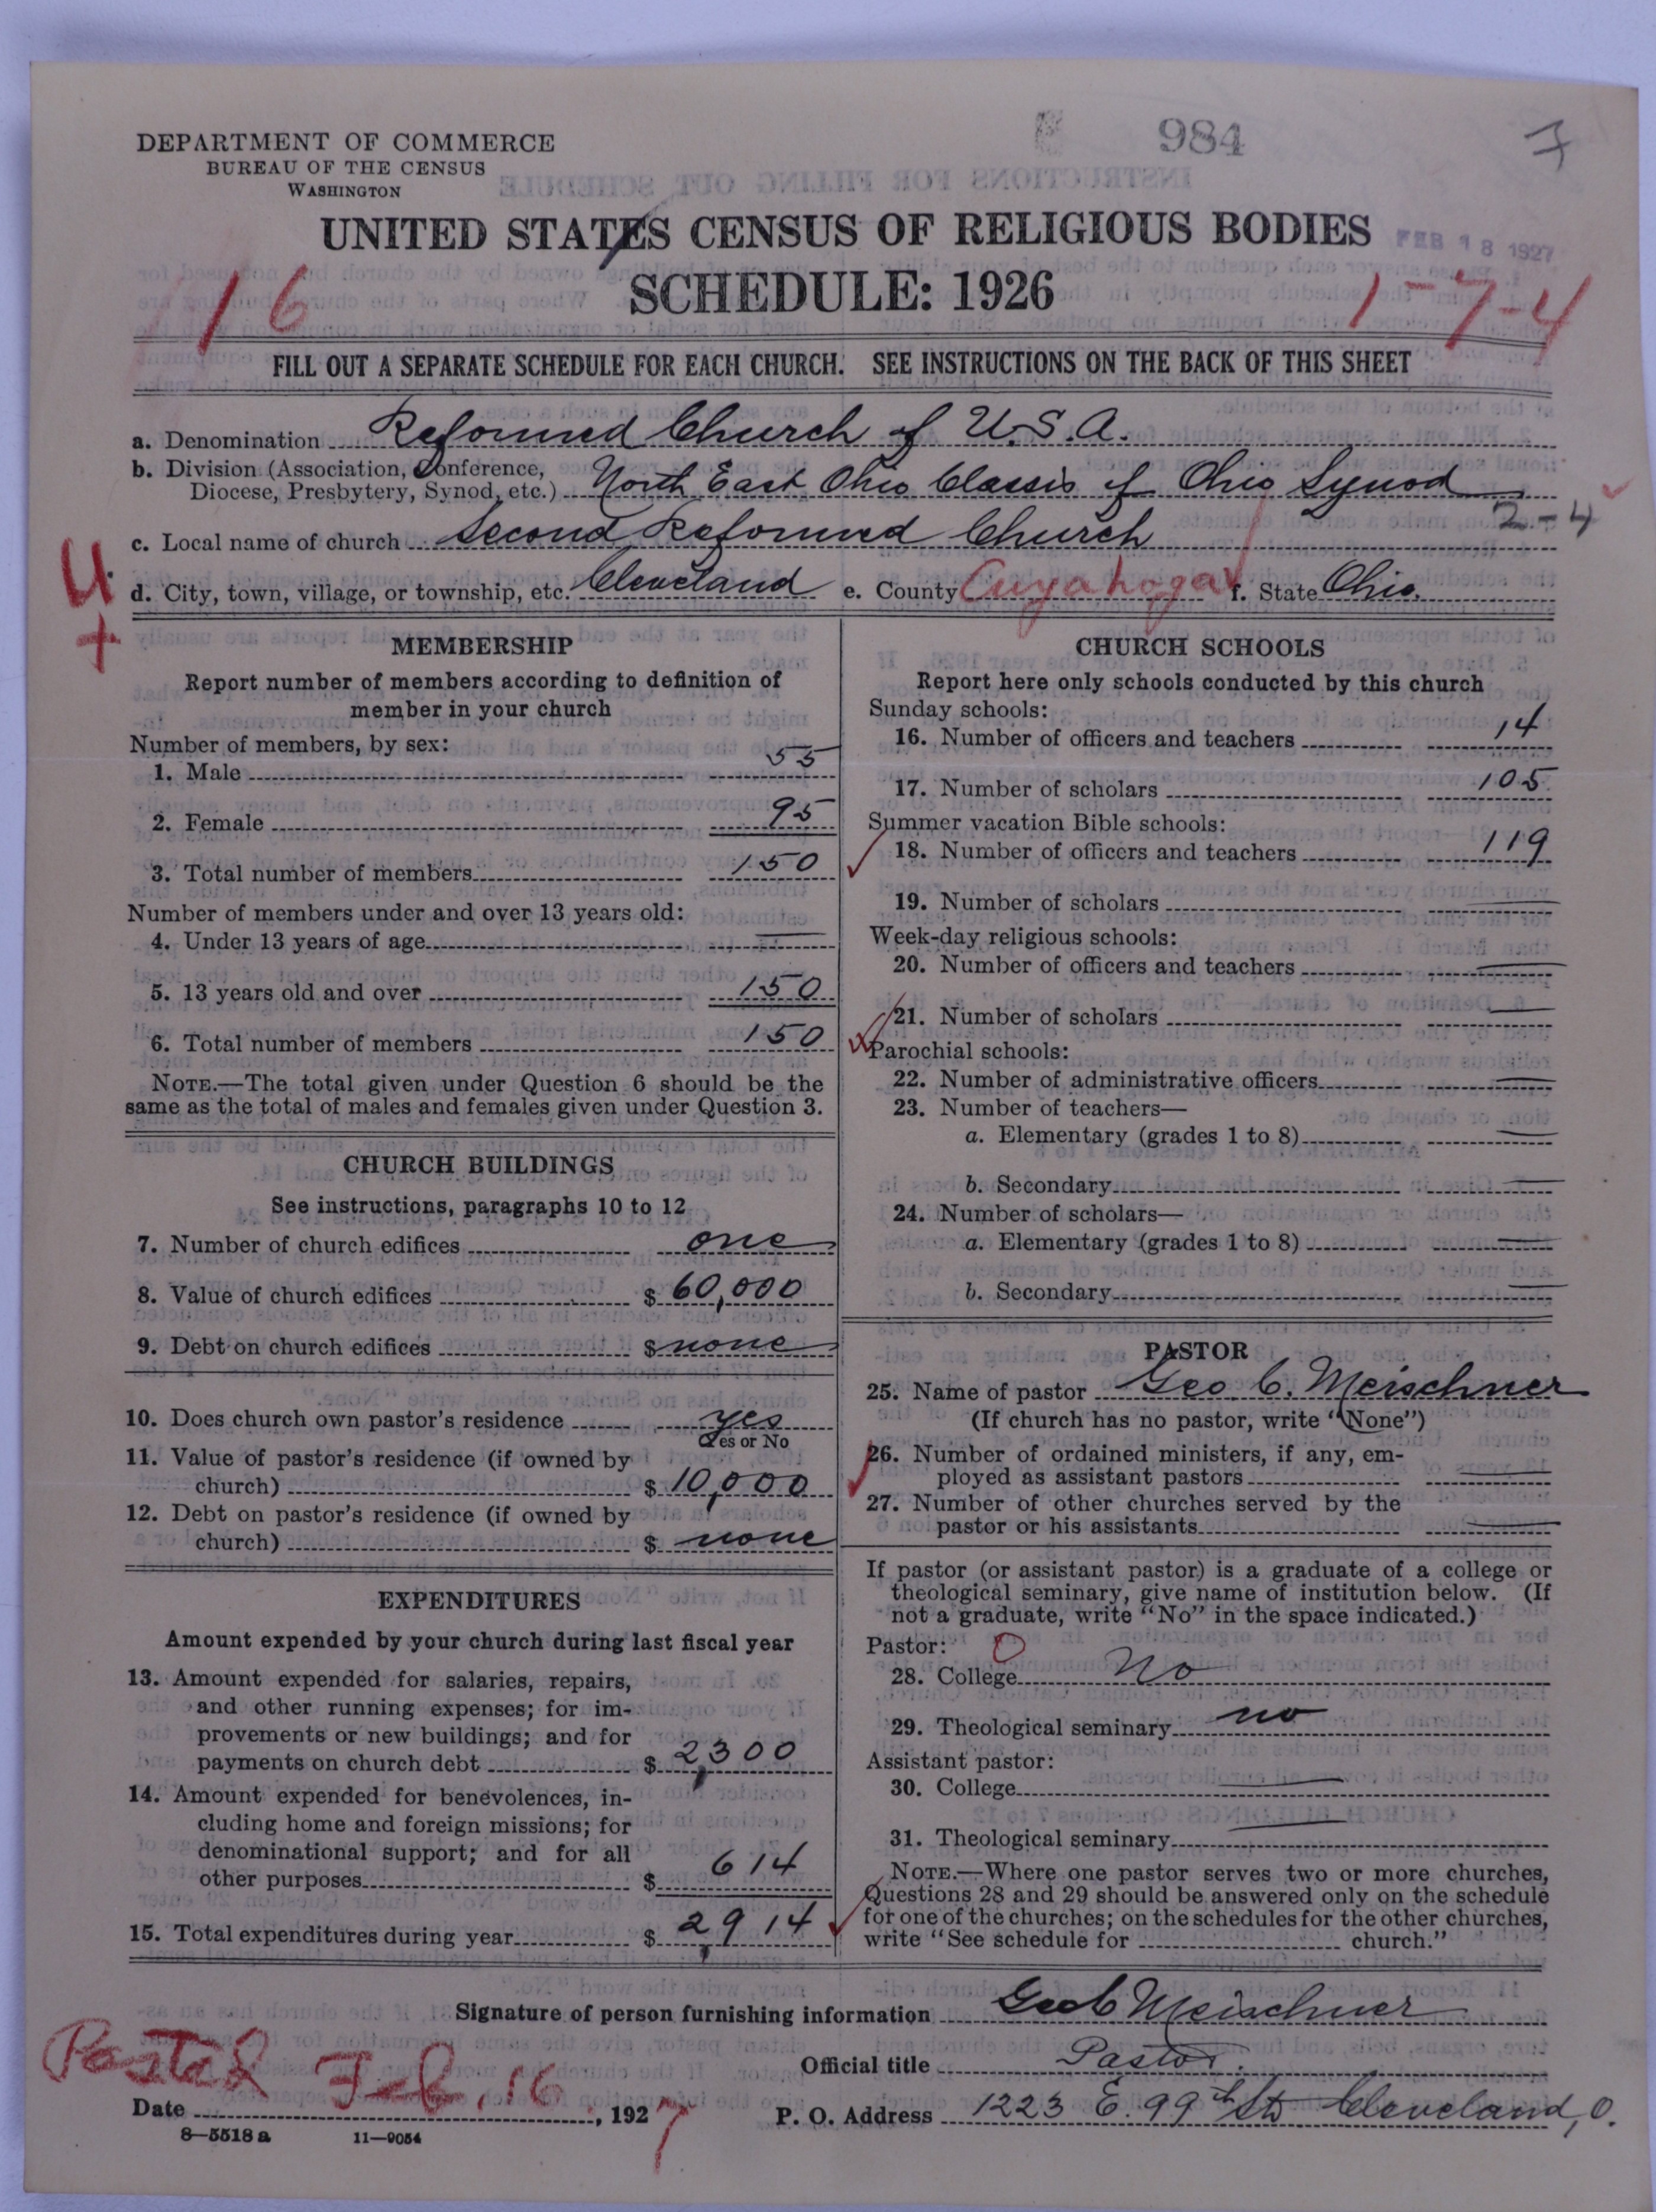 984
7
DEPARTMENT OF COMMERCE
BUREAU OF THE CENSUS
WASHINGTON
UNITED STATES CENSUS OF RELIGIOUS BODIES
FEB 18 1927
SCHEDULE: 1926
16
1-7-4
FILL OUT A SEPARATE SCHEDULE FOR EACH CHURCH. SEE INSTRUCTIONS ON THE BACK OF THIS SHEET
a. Denomination Reformed Church of U.S.A.
b. Division (Association, Conference,
Diocese, Presbytery, Synod, etc.) North East Ohio Classis of Ohio Synod
2-4
c. Local name of church Second Reformed Church
U
d. City, town, village, or township, etc. Cleveland e. County Cuyahoga f. State Ohio.
+
MEMBERSHIP
Report number of members according to definition of
member in your church
Number of members, by sex:
1. Male 55
2. Female 95
3. Total number of members 150
Number of members under and over 13 years old:
4. Under 13 years of age —
5. 13 years old and over 150
6. Total number of members 150
NOTE.—The total given under Question 6 should be the
same as the total of males and females given under Question 3.
CHURCH BUILDINGS
See instructions, paragraphs 10 to 12
7. Number of church edifices one
8. Value of church edifices $ 60,000
9. Debt on church edifices $ none
10. Does church own pastor's residence yes
Yes or No
11. Value of pastor's residence (if owned by
church) $ 10,000
12. Debt on pastor's residence (if owned by
church) $ none
EXPENDITURES
Amount expended by your church during last fiscal year
13. Amount expended for salaries, repairs,
and other running expenses; for im-
provements or new buildings; and for
payments on church debt $ 2,300
14. Amount expended for benevolences, in-
cluding home and foreign missions; for
denominational support; and for all
other purposes $ 614
15. Total expenditures during year $ 2,914
CHURCH SCHOOLS
Report here only schools conducted by this church
Sunday schools:
16. Number of officers and teachers 14
17. Number of scholars 105
Summer vacation Bible schools:
18. Number of officers and teachers 119
19. Number of scholars —
Week-day religious schools:
20. Number of officers and teachers —
21. Number of scholars —
Parochial schools:
22. Number of administrative officers —
23. Number of teachers—
a. Elementary (grades 1 to 8) —
b. Secondary —
24. Number of scholars—
a. Elementary (grades 1 to 8) —
b. Secondary —
PASTOR
25. Name of pastor Geo C. Meischner
(If church has no pastor, write "None")
26. Number of ordained ministers, if any, em-
ployed as assistant pastors —
27. Number of other churches served by the
pastor or his assistants —
If pastor (or assistant pastor) is a graduate of a college or
theological seminary, give name of institution below. (If
not a graduate, write "No" in the space indicated.)
Pastor: 0
28. College No
29. Theological seminary no
Assistant pastor:
30. College —
31. Theological seminary —
NOTE.—Where one pastor serves two or more churches,
Questions 28 and 29 should be answered only on the schedule
for one of the churches; on the schedules for the other churches,
write "See schedule for church."
Signature of person furnishing information Geo C Meischner
Official title Pastor.
Posted Feb. 16
Date , 1927
P. O. Address 1223 E. 99th St Cleveland, O.
8—5518 a 11—9054